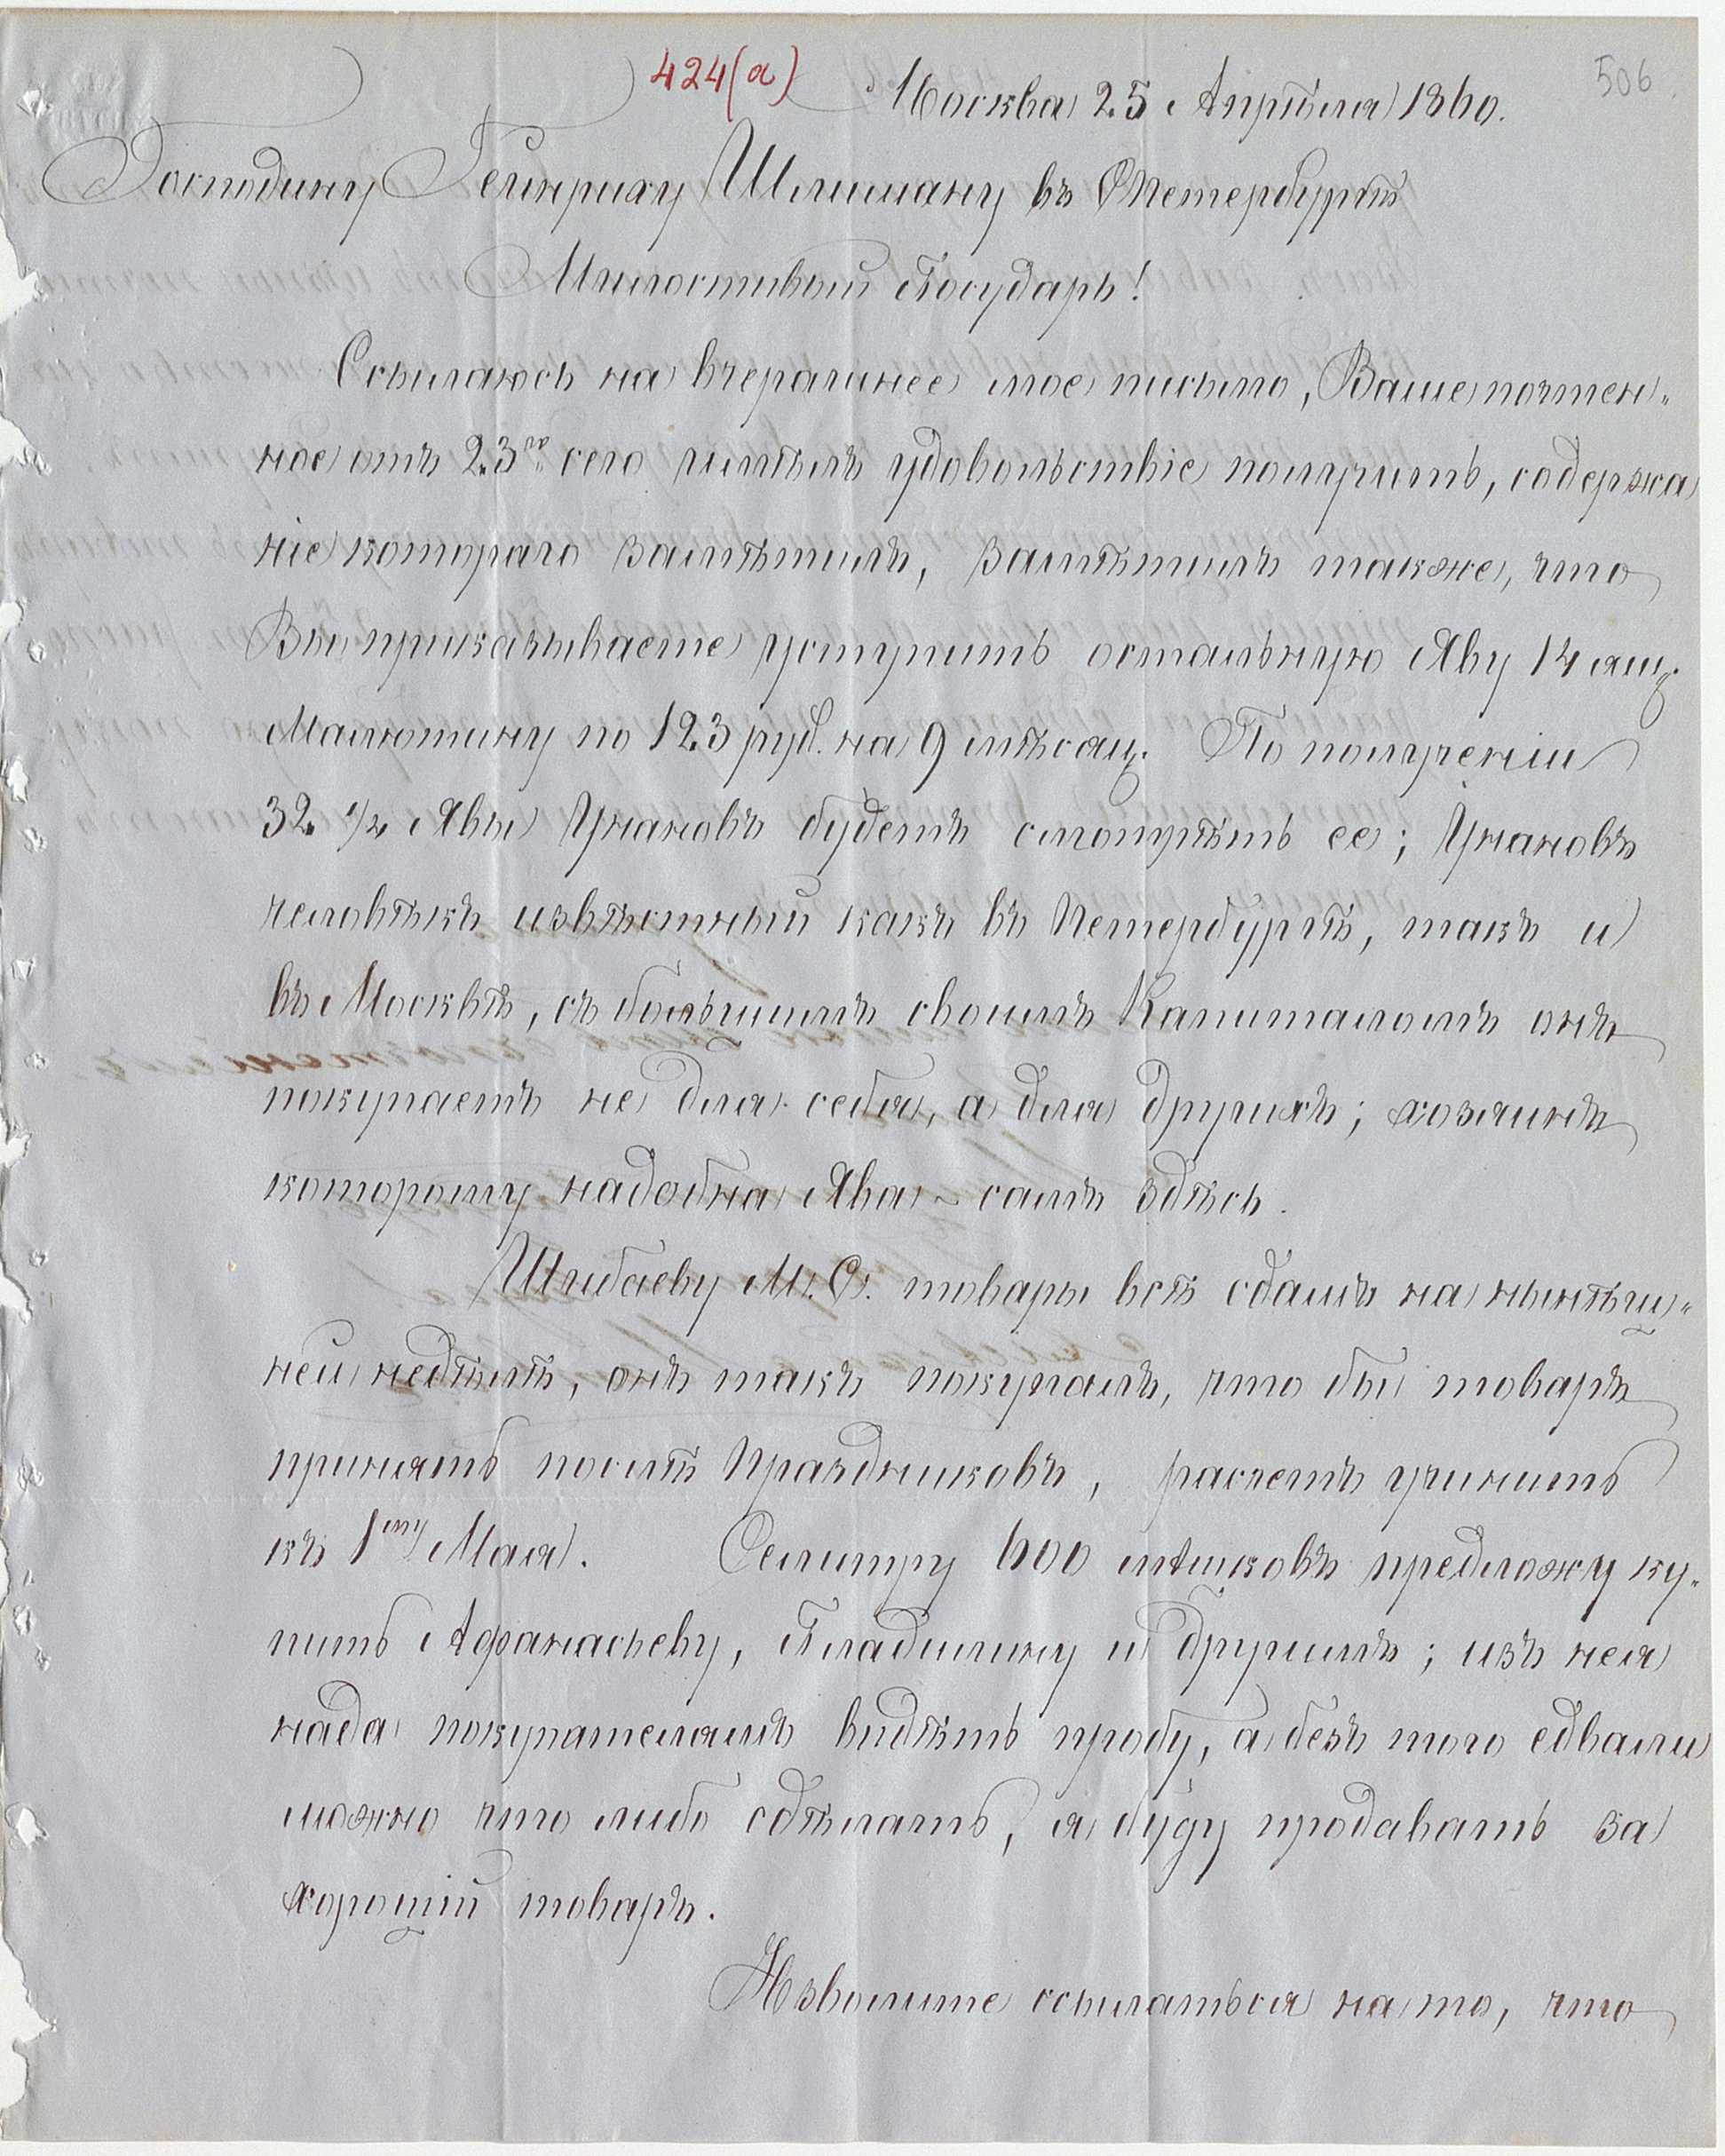 424(а)
506
Москва 25 Апрѣля 1860.
Господину Генриху Шлиману въ СПетербургѣ
Милостивый Государь!
Ссылаюсь на вчерашнее мое письмо, Ваше почтен-
ное отъ 23го сего имѣлъ удовольствіе получить, содержа
ніе котораго замѣтилъ, замѣтилъ также, что
Вы приказываете уступить остальную Яву 14 ящ.
Малютину по 123 руб. на 9 мѣсяц. По полученіи
32 1/2 Явы Унановъ будетъ смотрѣть ее; Унановъ
человѣкъ извѣстный какъ въ Петербургѣ, такъ и
въ Москвѣ, съ большимъ своимъ Капиталомъ онъ
покупаетъ не для себя, а для другихъ; хозяинъ
которому надобна Ява - самъ здѣсь.
Шибаеву М. С. товары всѣ сдамъ на нынѣш-
ней недѣлѣ, онъ такъ покупалъ, что бы товаръ
принять послѣ Праздниковъ, расчетъ учинить
къ 1му Мая. Селитру 600 мѣшковъ предложу ку-
пить Афанасьеву, Гладилину и другимъ; изъ нея
нада покупателямъ видѣть пробу, а безъ того едвали
можно что либо сдѣлать, я буду продавать за
хорошій товаръ.
Изволите ссылаться на то, что